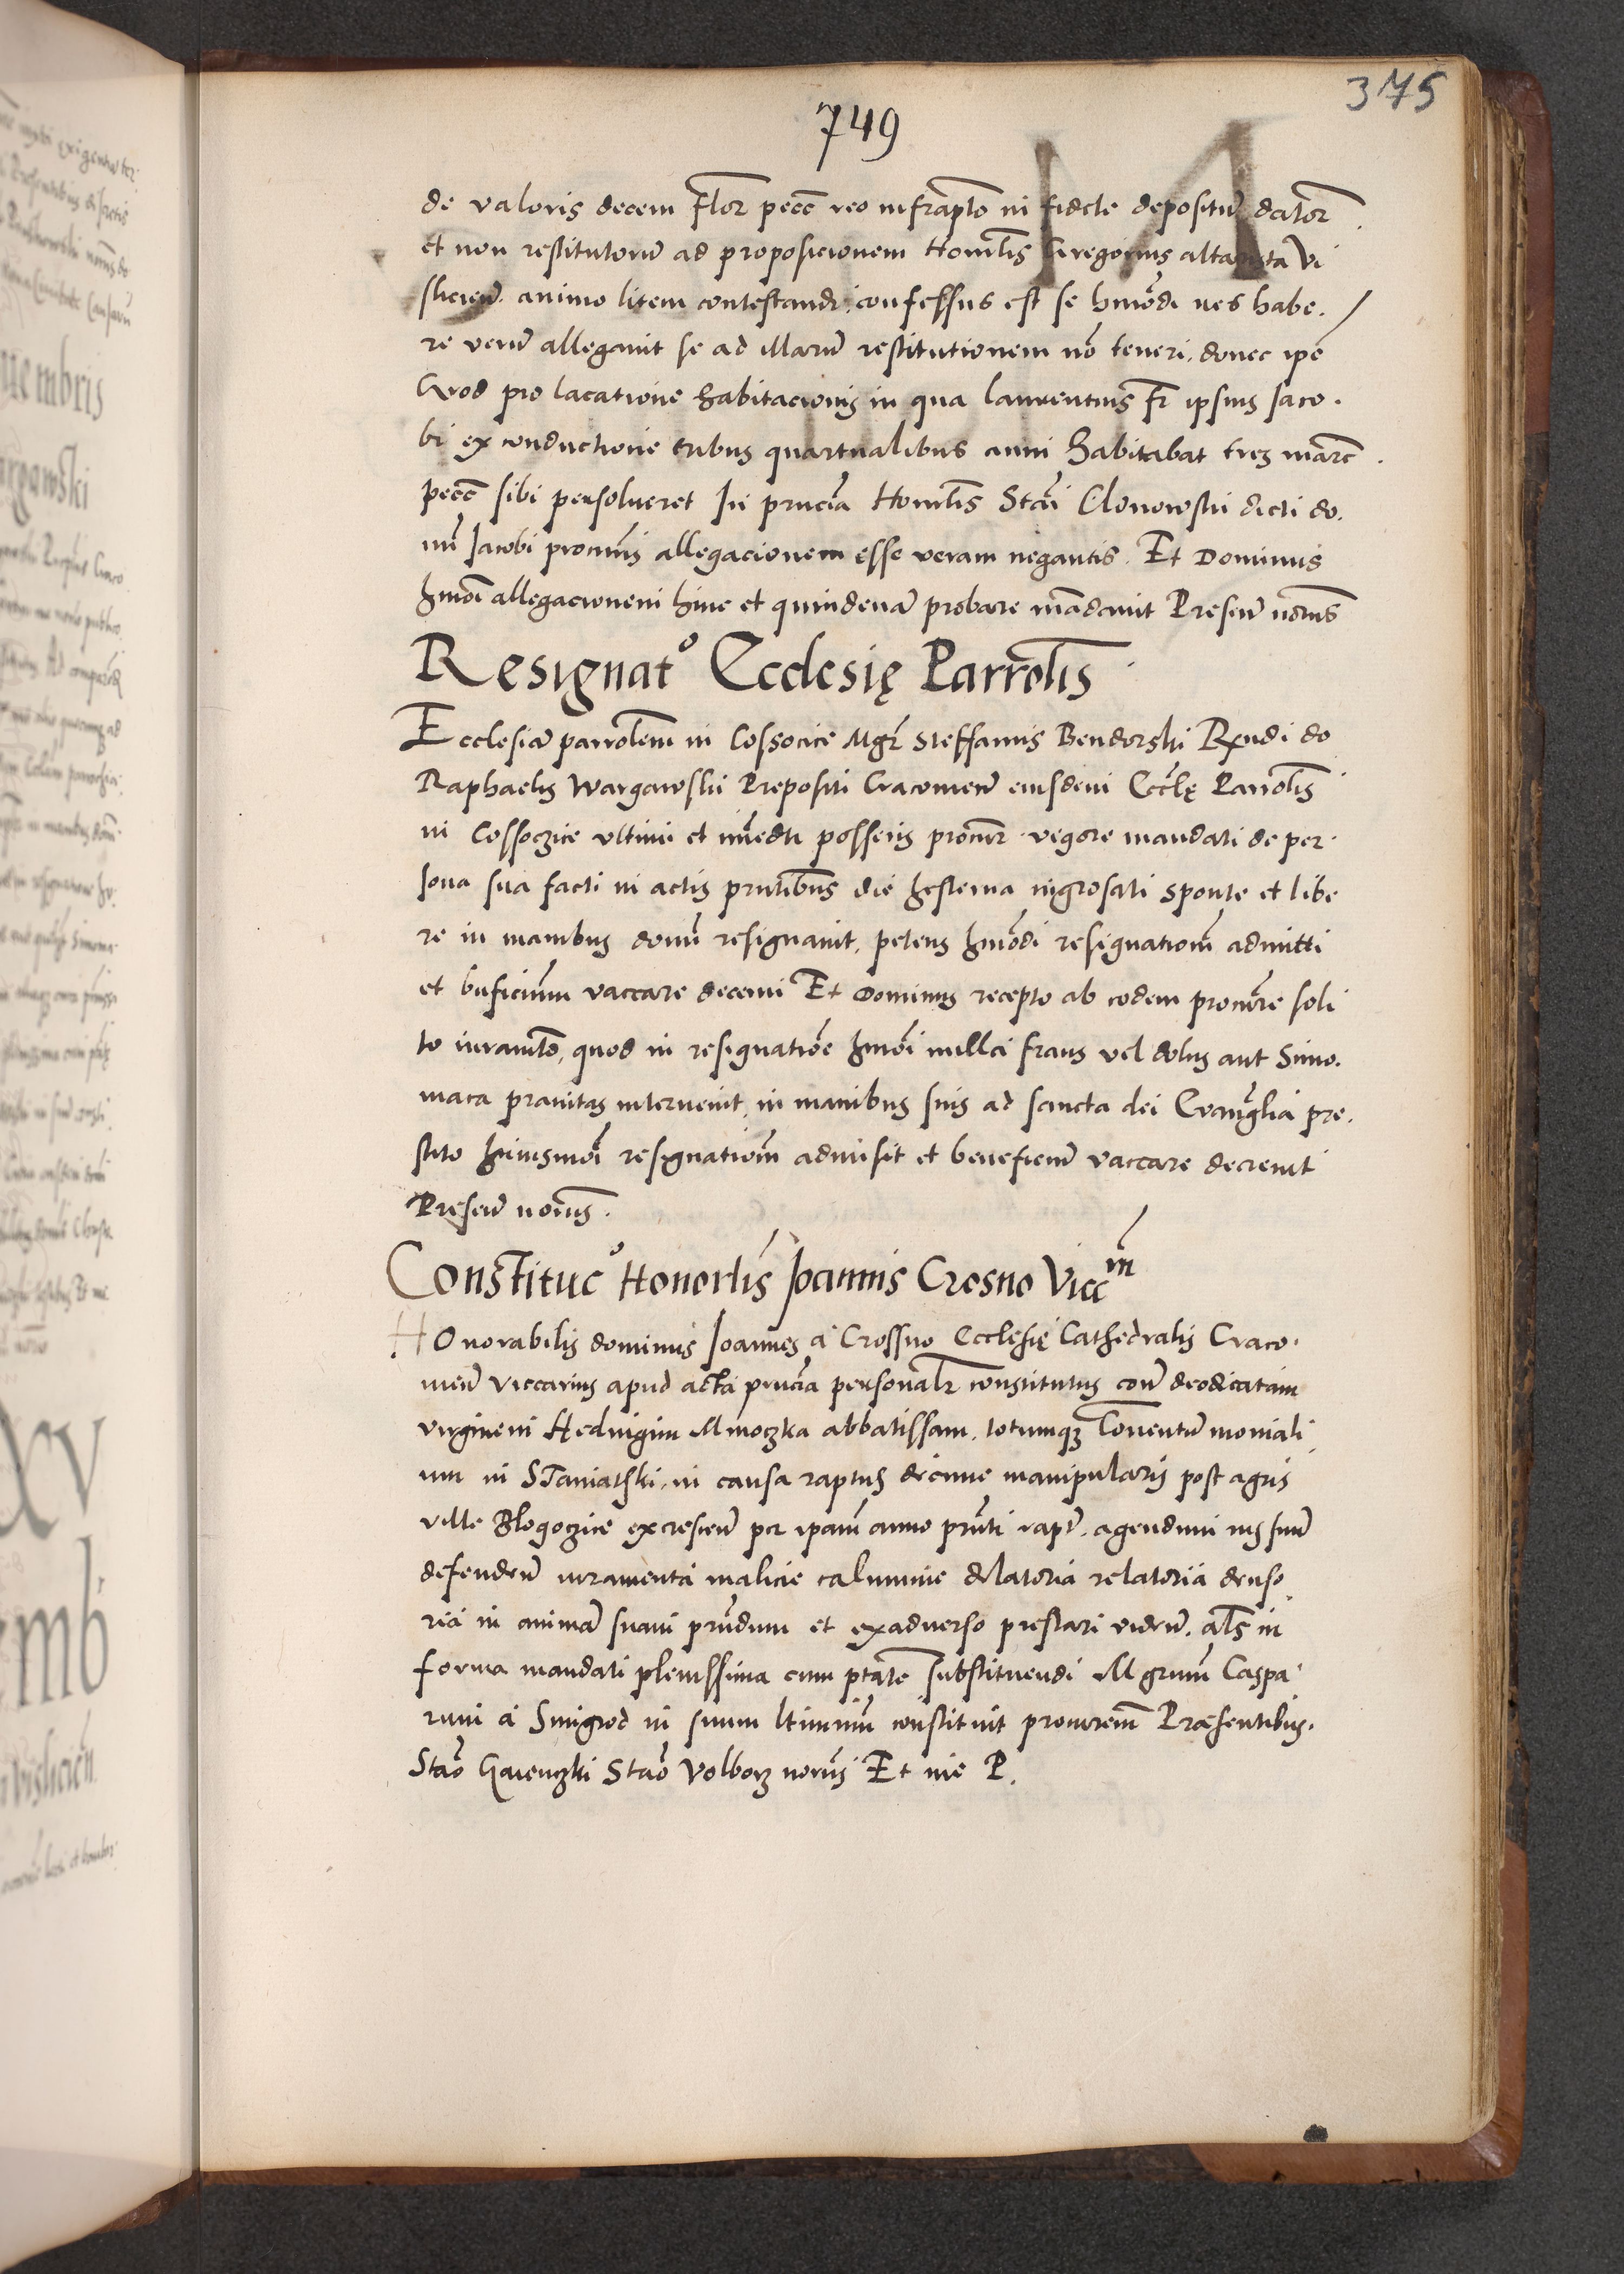 375
749
de valoris decem Flor pecc reo infrapto in fidele depositu dator
et non restitutoru ad proposicionem Honorlis Gregorius altarista Vi
slicien. animo litem contestandi confessus est se hmodi res habe.
re veru allegauit se ad illaru restitutionem no teneri, donec ipe
Quod pro lacatione habitacionis in qua laurentius fr ipsius Jaco.
bi ex conductione tribus quartualibus anni habitabat tres marc
pecc sibi persolueret In pncia Honorlis Stai Clonowski dicti do.
mi Jacobi procuris allegacionem esse veram negantis. Et Dominus
hmoi allegacionem hinc et quindena probare madauit Presen notus
Resignato Ecclesię Parrolis
Ecclesia parrolem in Cossocice Mgr Steffanus Bendorski Rndi do
Raphaelis Wargawski Prepositi Cracouien eiusdem Eccle Parrolis
in Cossoczice vltimi et imedti possess procur. vegore mandati de per.
sona sua facti in actis pntibus die hesterna ingrosati sponte et libe
re in manibus domi resignauit, petens hmodi resignationem admitti
et bnficium vaccare decerni Et Dominus recepto ab eodem procure soli
to iuramto, quod in resignatioe hmoi nulla fraus vel dolus aut Simo.
niaca prauitas interuenit, in manibus suis ad sancta dei Euanglia pre.
stito huiusmoi resignationem admisit et beneficiu vaccare decreuit
Presen notus.
Constituco Honorlis Joannis Crosno Vicc
HOnorabilis dominus Joannes a Crossno Ecclesię Cathedralis Craco.
uien viccarius apud acta pncia personalr constitutus con deodicatam
virginem Heduigim Mmoczka abbatissam, totumqz Conuentu moniali
um in STaniatski, in causa raptus decime manipularis post agris
ville Blogoczice excrescen per ipam anno pnti rapt, agendum ius suu
defenden iuramenta malicie calumnie dilatoria relatoria deciso
ria in anima suam prndum et exaduerso prestari viden, als in
forma mandati plenissima cum ptate substituendi Mgrum Caspa
rum a Smigrod in suum ltimum constituit procurem Præsentibus.
Stao Gaienczki Stao Volborz notus Et me P.